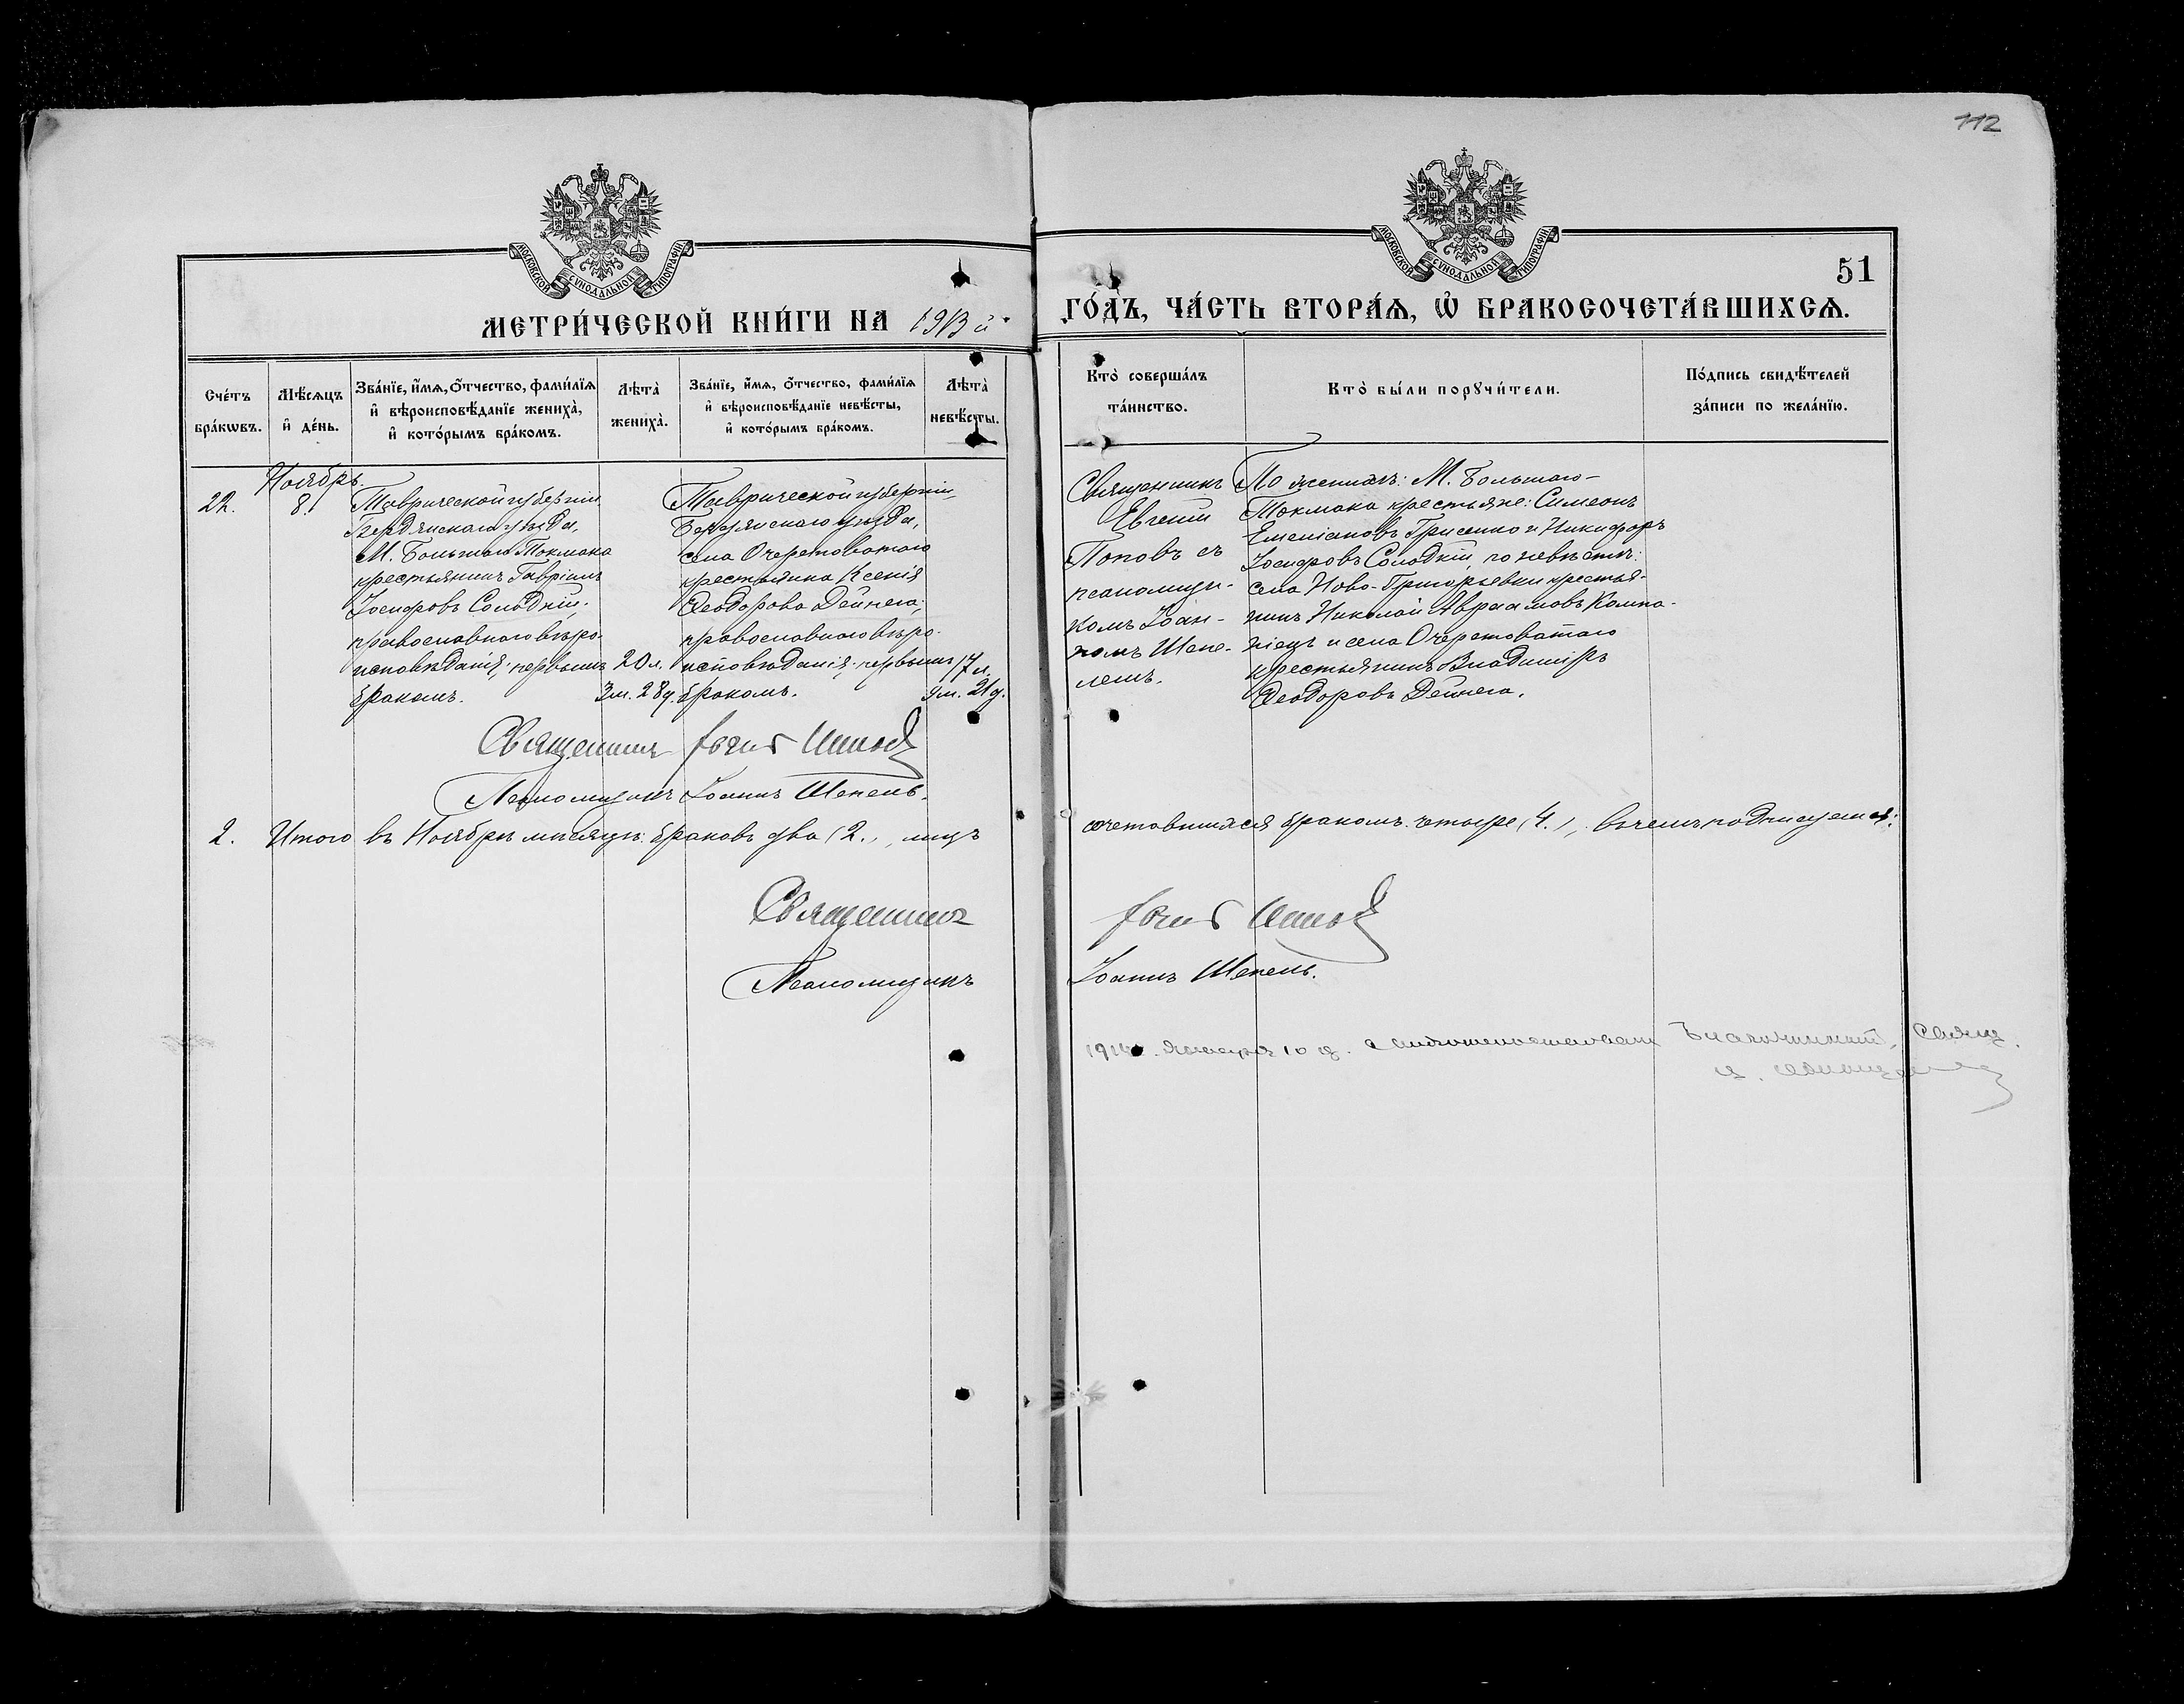 112
МОСКОВСКОЙ СѴНОДАЛЬНОЙ ТИПОГРАФІИ
МОСКОВСКОЙ СѴНОДАЛЬНОЙ ТИПОГРАФІИ
51
МЕТРИ́ЧЕСКОЙ КНИ́ГИ НА 1913 й
ГО́ДЪ, ЧА́СТЬ ВТОРА́Ѧ, Ѡ҆ БРАКОСОЧЕТА́ВШИХСѦ.
Сче́тъ бра́кѡвъ.
Мѣ́сѧцъ и҆ де́нь.
Зва́нїе, и҆́мѧ, ѻ҆́тчество, фами́лїѧ
и҆ вѣроисповѣ́данїе жениха̀,
и҆ кото́рымъ бра́комъ.
Лѣта̀ жениха̀.
Зва́нїе, и҆́мѧ, ѻ҆́тчество, фами́лїѧ
и҆ вѣроисповѣ́данїе невѣ́сты,
и҆ кото́рымъ бра́комъ.
Лѣта̀ невѣ́сты.
Кто̀ соверша́лъ та́инство.
Кто̀ бы́ли порꙋчи́тели.
По́дпись свидѣ́телей
за́писи по жела́нїю.
Ноябрь.
22.
8.
Таврической губерніи,
Бердянскаго уѣзда,
М. Большаго Токмака
крестьянинъ Гавріилъ
Іосифовъ Солодкій,
православнаго вѣро-
исповѣданія; первымъ
бракомъ.
20 л.
3 м. 28 д.
Таврической губерніи,
Бердянскаго уѣзда,
села Очеретоватаго
крестьянка Ксенія
Ѳеодорова Дейнега,
православнаго вѣро-
исповѣданія; первымъ
бракомъ.
17 л.
9 м. 21 д.
Священникъ
Евгеній
Поповъ съ
псаломщи-
комъ Іоан-
номъ Шепе-
лемъ.
По женихѣ: М. Большаго-
Токмака крестьяне: Симеонъ
Емеліановъ Грисенко и Никифоръ
Іосифовъ Солодкій, по невѣстѣ:
села Ново-Григорьевки крестья-
нинъ Николай Авраамовъ Компа-
ніецъ и села Очеретоватаго
крестьянинъ Владиміръ
Ѳеодоровъ Дейнега.
Священникъ
Псаломщикъ Іоаннъ Шепель.
2. Итого въ Ноябрѣ мѣсяцѣ: браковъ два (2.), лицъ сочетавшихся бракомъ четыре (4.), въ чемъ подписуемся:
Священникъ
Псаломщикъ Іоаннъ Шепель.
Января 10 д. Благочинный, Свящ.